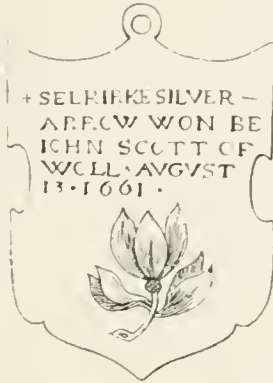 + SELKIRKE SILVER —
ARROW WON BE
IOHN SCOTT OF
WOLL · AVGVST
13 · 1661 ·